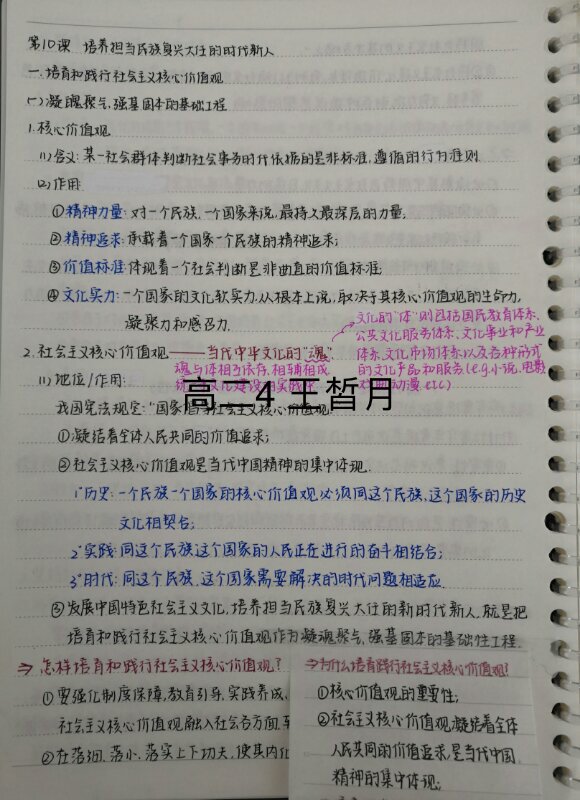 第10课 培养担当民族复兴大任的时代新人
一.培育和践行社会主义核心价值观
(一)凝魂聚气,强基固本的基础工程
1.核心价值观
(1)含义:某一社会群体判断社会事务时代依据的是非标准,遵循的行为准则
(2)作用:
①精神力量:对一个民族、一个国家来说,最持久最深层的力量.
②精神追求:承载着一个国家一个民族的精神追求;
③价值标准:体现着一个社会判断是非曲直的价值标准;
④文化实力:一个国家的文化软实力,从根本上说,取决于其核心价值观的生命力,
凝聚力和感召力.
文化的"体"则包括国民教育体系、
公共文化服务体系、文化事业和产业
体系、文化市场体系以及各种形式
的文化产品和服务(e.g.小说,电影
动画 etc)
2.社会主义核心价值观——当代中华文化的"魂"
魂与体相互依存,相辅相成
(1)地位/作用:
高二4 王皙月
我国宪法规定:"国家倡导社会主义核心价值观"
①凝结着全体人民共同的价值追求;
②社会主义核心价值观是当代中国精神的集中体现.
1°历史:一个民族一个国家的核心价值观必须同这个民族、这个国家的历史
文化相契合;
2°实践:同这个民族这个国家的人民正在进行的奋斗相结合;
3°时代:同这个民族、这个国家需要解决的时代问题相适应.
③发展中国特色社会主义文化,培养担当民族复兴大任的新时代新人,就是把
培育和践行社会主义核心价值观作为凝魂聚气、强基固本的基础性工程.
⇒怎样培育和践行社会主义核心价值观?
①要强化制度保障,教育引导,实践养成、
社会主义核心价值观融入社会各方面,
②在落细、落小、落实上下功夫,使其内化
⇒为什么培育践行社会主义核心价值观?
①核心价值观的重要性;
②社会主义核心价值观凝结着全体
人民共同的价值追求,是当代中国
精神的集中体现;